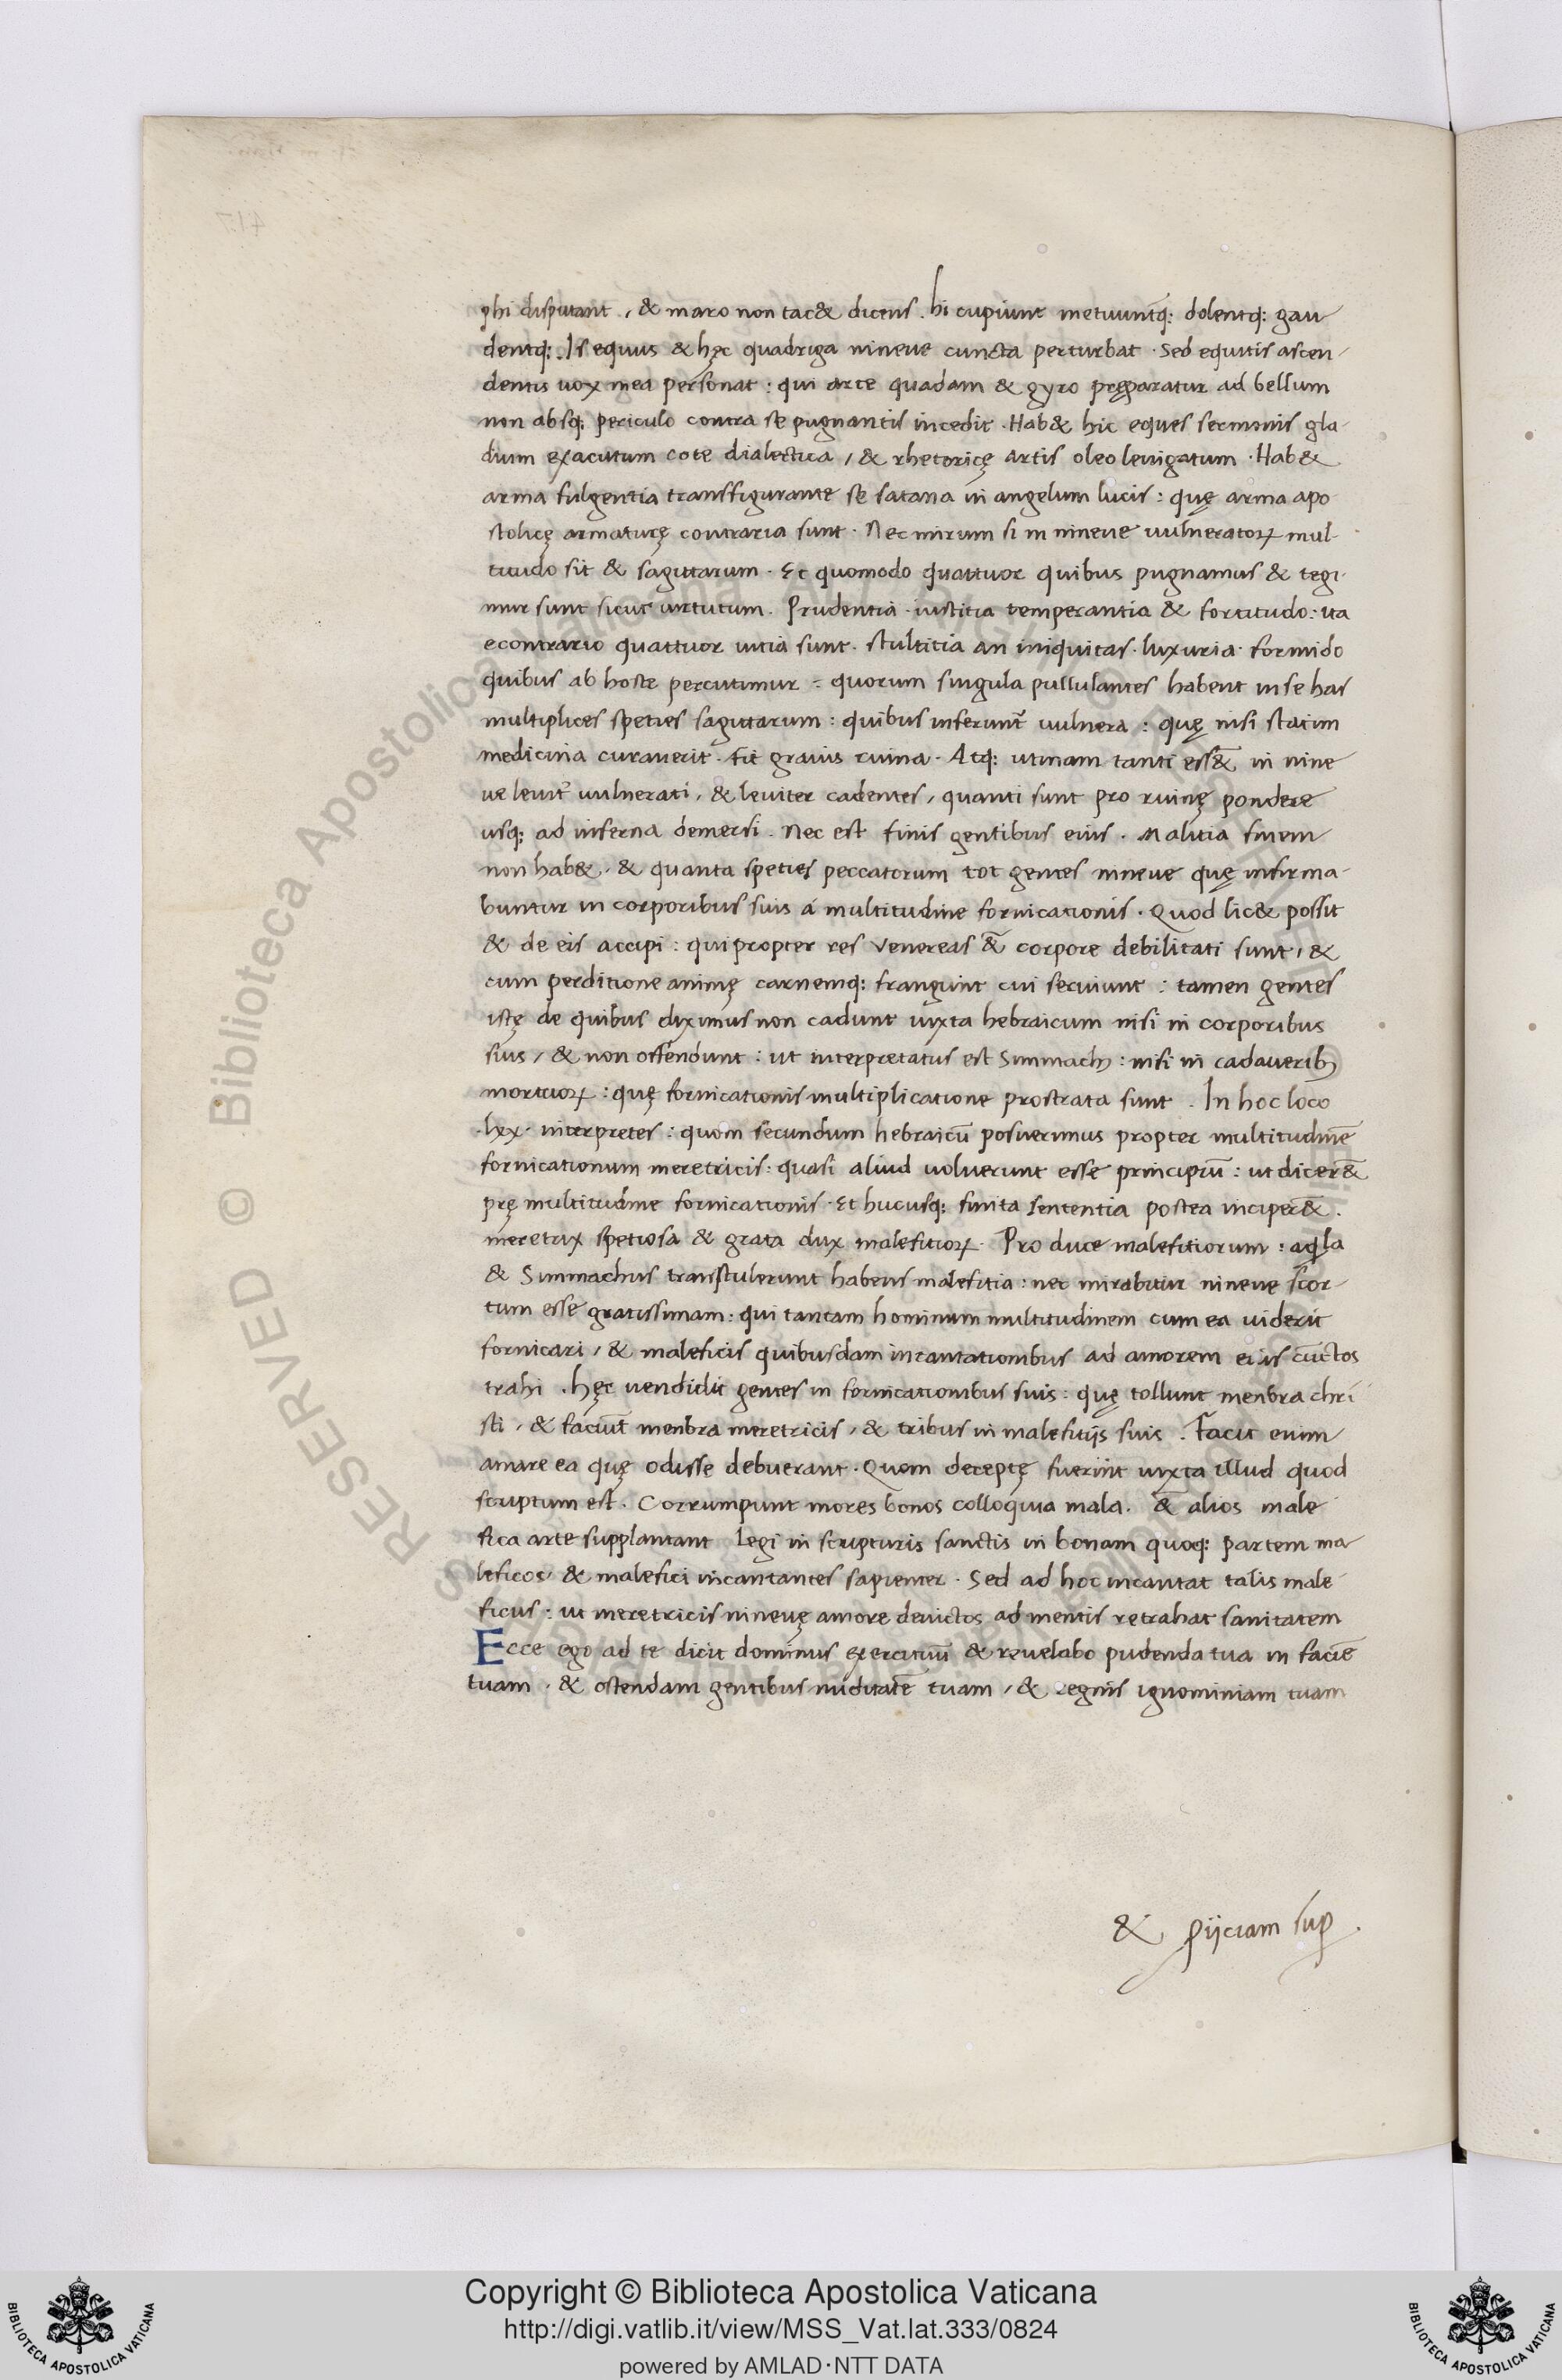 phi disputant, & maro non tac& dicens. hi cupiunt metuuntq: dolentq: gau
dentq:. Is equus & hęc quadriga nineue cuncta perturbat. Sed equitis ascen-
dentis uox mea personat: qui arte quadam & gyro pręparatur ad bellum
non absq: periculo contra se pugnantis incedit. Hab& hic eques sermonis gla-
dium exacutum cote dialectica, & rhetoricę artis oleo leuigatum. Hab&
arma fulgentia transfigurante se satana in angelum lucis: quę arma apo
stolicę armaturę contraria sunt. Nec mirum si in nineue uulneratoꝝ mul-
titudo sit & sagittarum. Et quomodo quattuor quibus pugnamus & tegi-
mur sunt sicut uirtutum. Prudentia. iustitia temperantia & fortitudo: ita
econtrario quattuor uitia sunt. stultitia an iniquitas. luxuria. formido
quibus ab hoste percutimur: quorum singula pullulantes habent in se has
multiplices speties sagittarum: quibus inferunt᷑ uulnera: quę nisi statim
medicina curauerit. Fit grauis ruina. Atq: utinam tanti ess&̄ in nine
ue leuit᷑ uulnerati, & leuiter cadentes, quanti sunt pro ruinę pondere
usq: ad inferna demersi. Nec est finis gentibus eius. Malitia finem
non hab&, & quanta speties peccatorum tot gentes nineue quę infirma-
buntur in corporibus suis á multitudine fornicationis. Quod lic& possit
& de eis accipi: qui propter res venereas &̄ corpore debilitati sunt, &
cum perditione animę carnemq: frangunt cui seruiunt: tamen gentes
istę de quibus diximus non cadunt iuxta hebraicum nisi in corporibus
suis, & non offendunt: ut interpretatus est Simmachꝰ: nisi in cadaueribꝰ
mortuoꝝ: quę fornicationis multiplicatione prostrata sunt. In hoc loco
.lxx. interpretes: quom secundum hebraicū posuerimus propter multitudinē
fornicationum meretricis: quasi aliud uoluerunt esse principiū: ut dicer&̄
prę multitudine fornicationis. Et hucusq: finita sententia postea inciper&̄.
meretrix spetiosa & grata dux malefitioꝝ. Pro duce malefitiorum: aqla
& Simmachus transtulerunt habens malefitia: nec mirabitur nineue scor-
tum esse gratissimam: qui tantam hominum multitudinem cum ea uiderit
fornicari, & maleficis quibusdam incantationibus ad amorem eius cūctos
trahi. hęc uendidit gentes in fornicationibus suis: quę tollunt menbra chri
sti, & faciūt menbra meretricis, & tribus in malefitijs suis. Facit enim
amare ea quę odisse debuerant. Quom deceptę fuerint iuxta illud quod
scriptum est. Corrumpunt mores bonos colloquia mala. &̄ alios male
fica arte supplantant Legi in scripturis sanctis in bonam quoq: partem ma
leficos, & malefici incantantes sapienter. Sed ad hoc incantat talis male
ficus: ut meretricis nineuę amore deuictos ad mentis retrahat sanitatem
Ecce ego ad te dicit dominus exercituū & reuelabo pudenda tua in faciē
tuam, & ostendam gentibus nuditatē tuam, & regnis ignominiam tuam
& ꝓijciam suꝑ.
417
RESERVED © Biblioteca Apostolica Vaticana
Copyright © Biblioteca Apostolica Vaticana
http://digi.vatlib.it/view/MSS_Vat.lat.333/0824
powered by AMLAD·NTT DATA
BIBLIOTECA APOSTOLICA VATICANA
BIBLIOTECA APOSTOLICA VATICANA